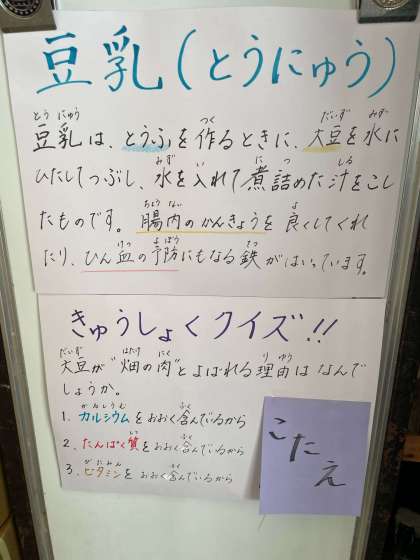 豆乳(とうにゅう)
豆乳は、とうふを作るときに、大豆を水に
ひたしてつぶし、水を入れて煮詰めた汁をこし
たものです。腸内のかんきょうを良くしてくれ
たり、ひん血の予防にもなる鉄がはいっています。
きゅうしょくクイズ!!
大豆が"畑の肉"とよばれる理由はなんで
しょうか。
1. カルシウムをおおく含んでいるから
2. たんぱく質をおおく含んでいるから
3. ビタミンをおおく含んでいるから
こたえ